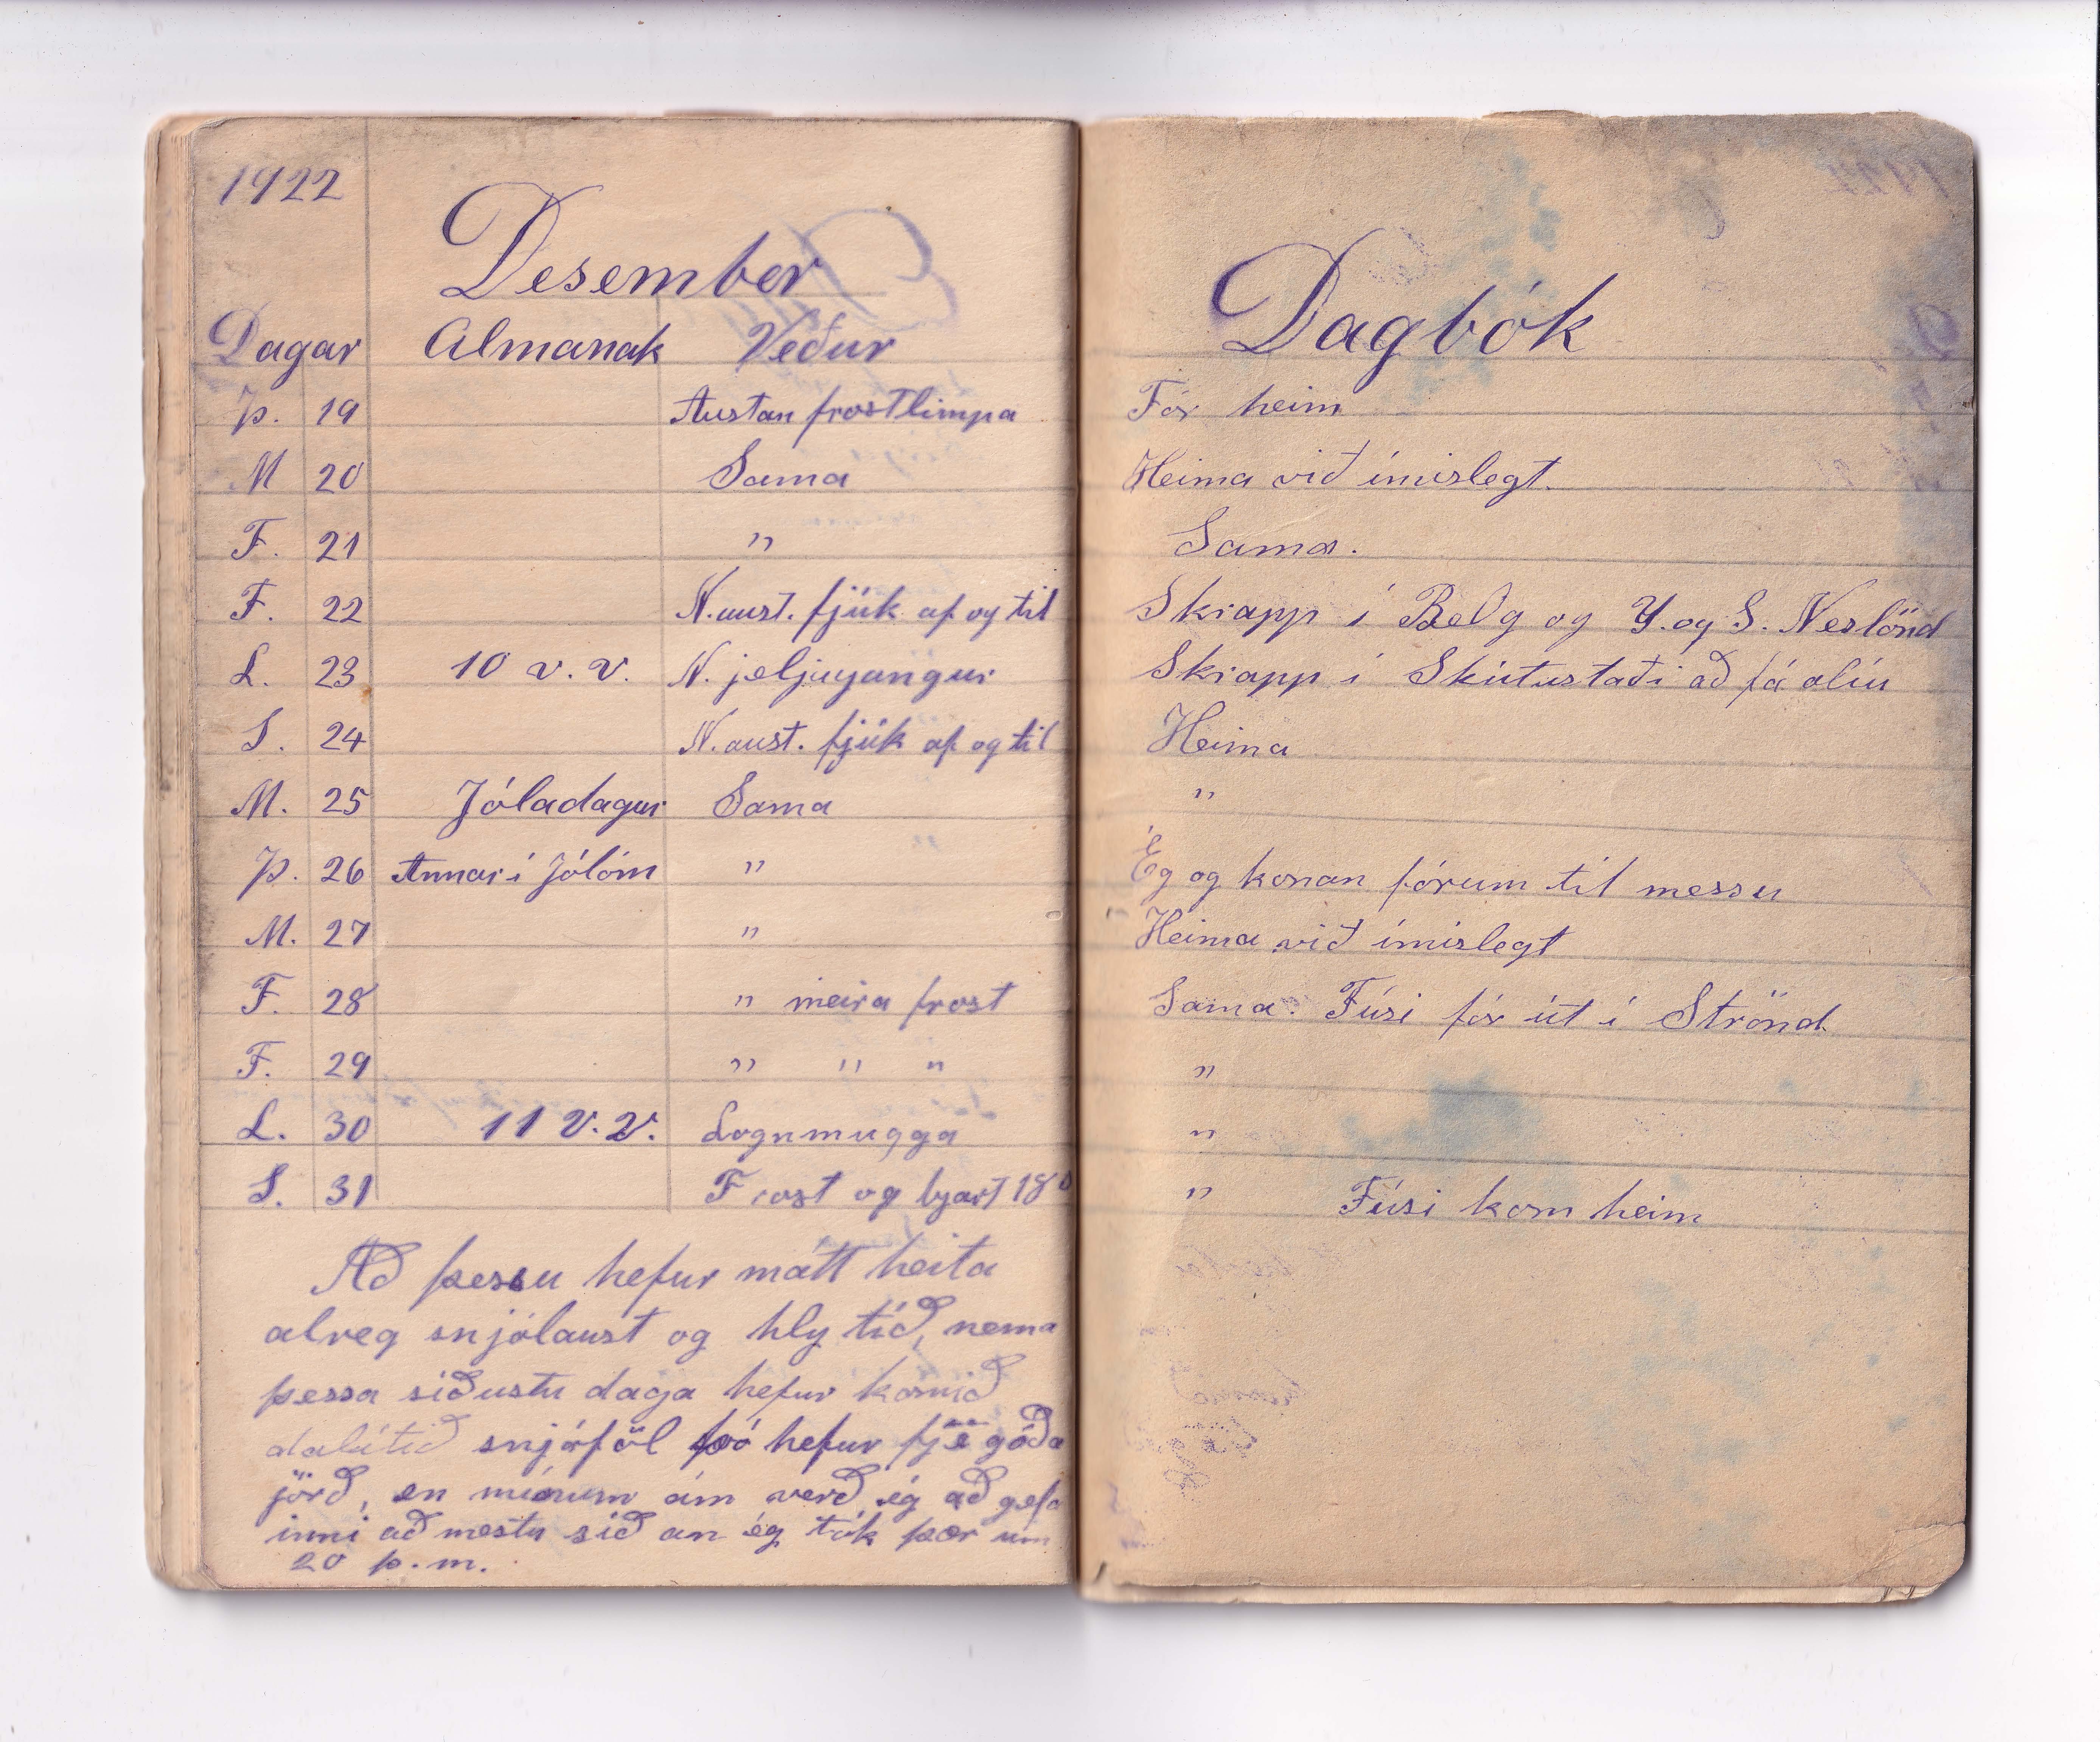 1922
Desember
Dagar Almanak Veður
Þ. 19 Austan frostlimpa
M 20 Sama
F. 21 "
F. 22 N.aust. fjúk af og til
L. 23 10 v. v. N. jeljagangur
S. 24 N.aust. fjúk af og til
M. 25 Jóladagur Sama
Þ. 26 Annar í Jólóm "
M. 27 "
F. 28 " meira frost
F. 29 " " "
L. 30 11 v. v. Lognmugga
S. 31 Frost og bjart 18°
Að þessu hefur mátt heita
alveg snjólaust og hly tíð, nema
þessa siðustu daga hefur komið
dalítið snjóföl þó hefur fje góða
jörð, en mínum ám verð ég að gefa
inni að mestu síð an ég tók þær um
20 þ.m.
Dagbók
Fór heim
Heima við ímislegt.
Sama.
Skrapp í Belg og Y. og S. Neslönd
Skrapp í Skútustaði að fá olíu
Heima
"
Ég og konan fórum til messu
Heima við ímislegt
Sama. Fúsi fór út í Strönd
"
"
" Fúsi kom heim